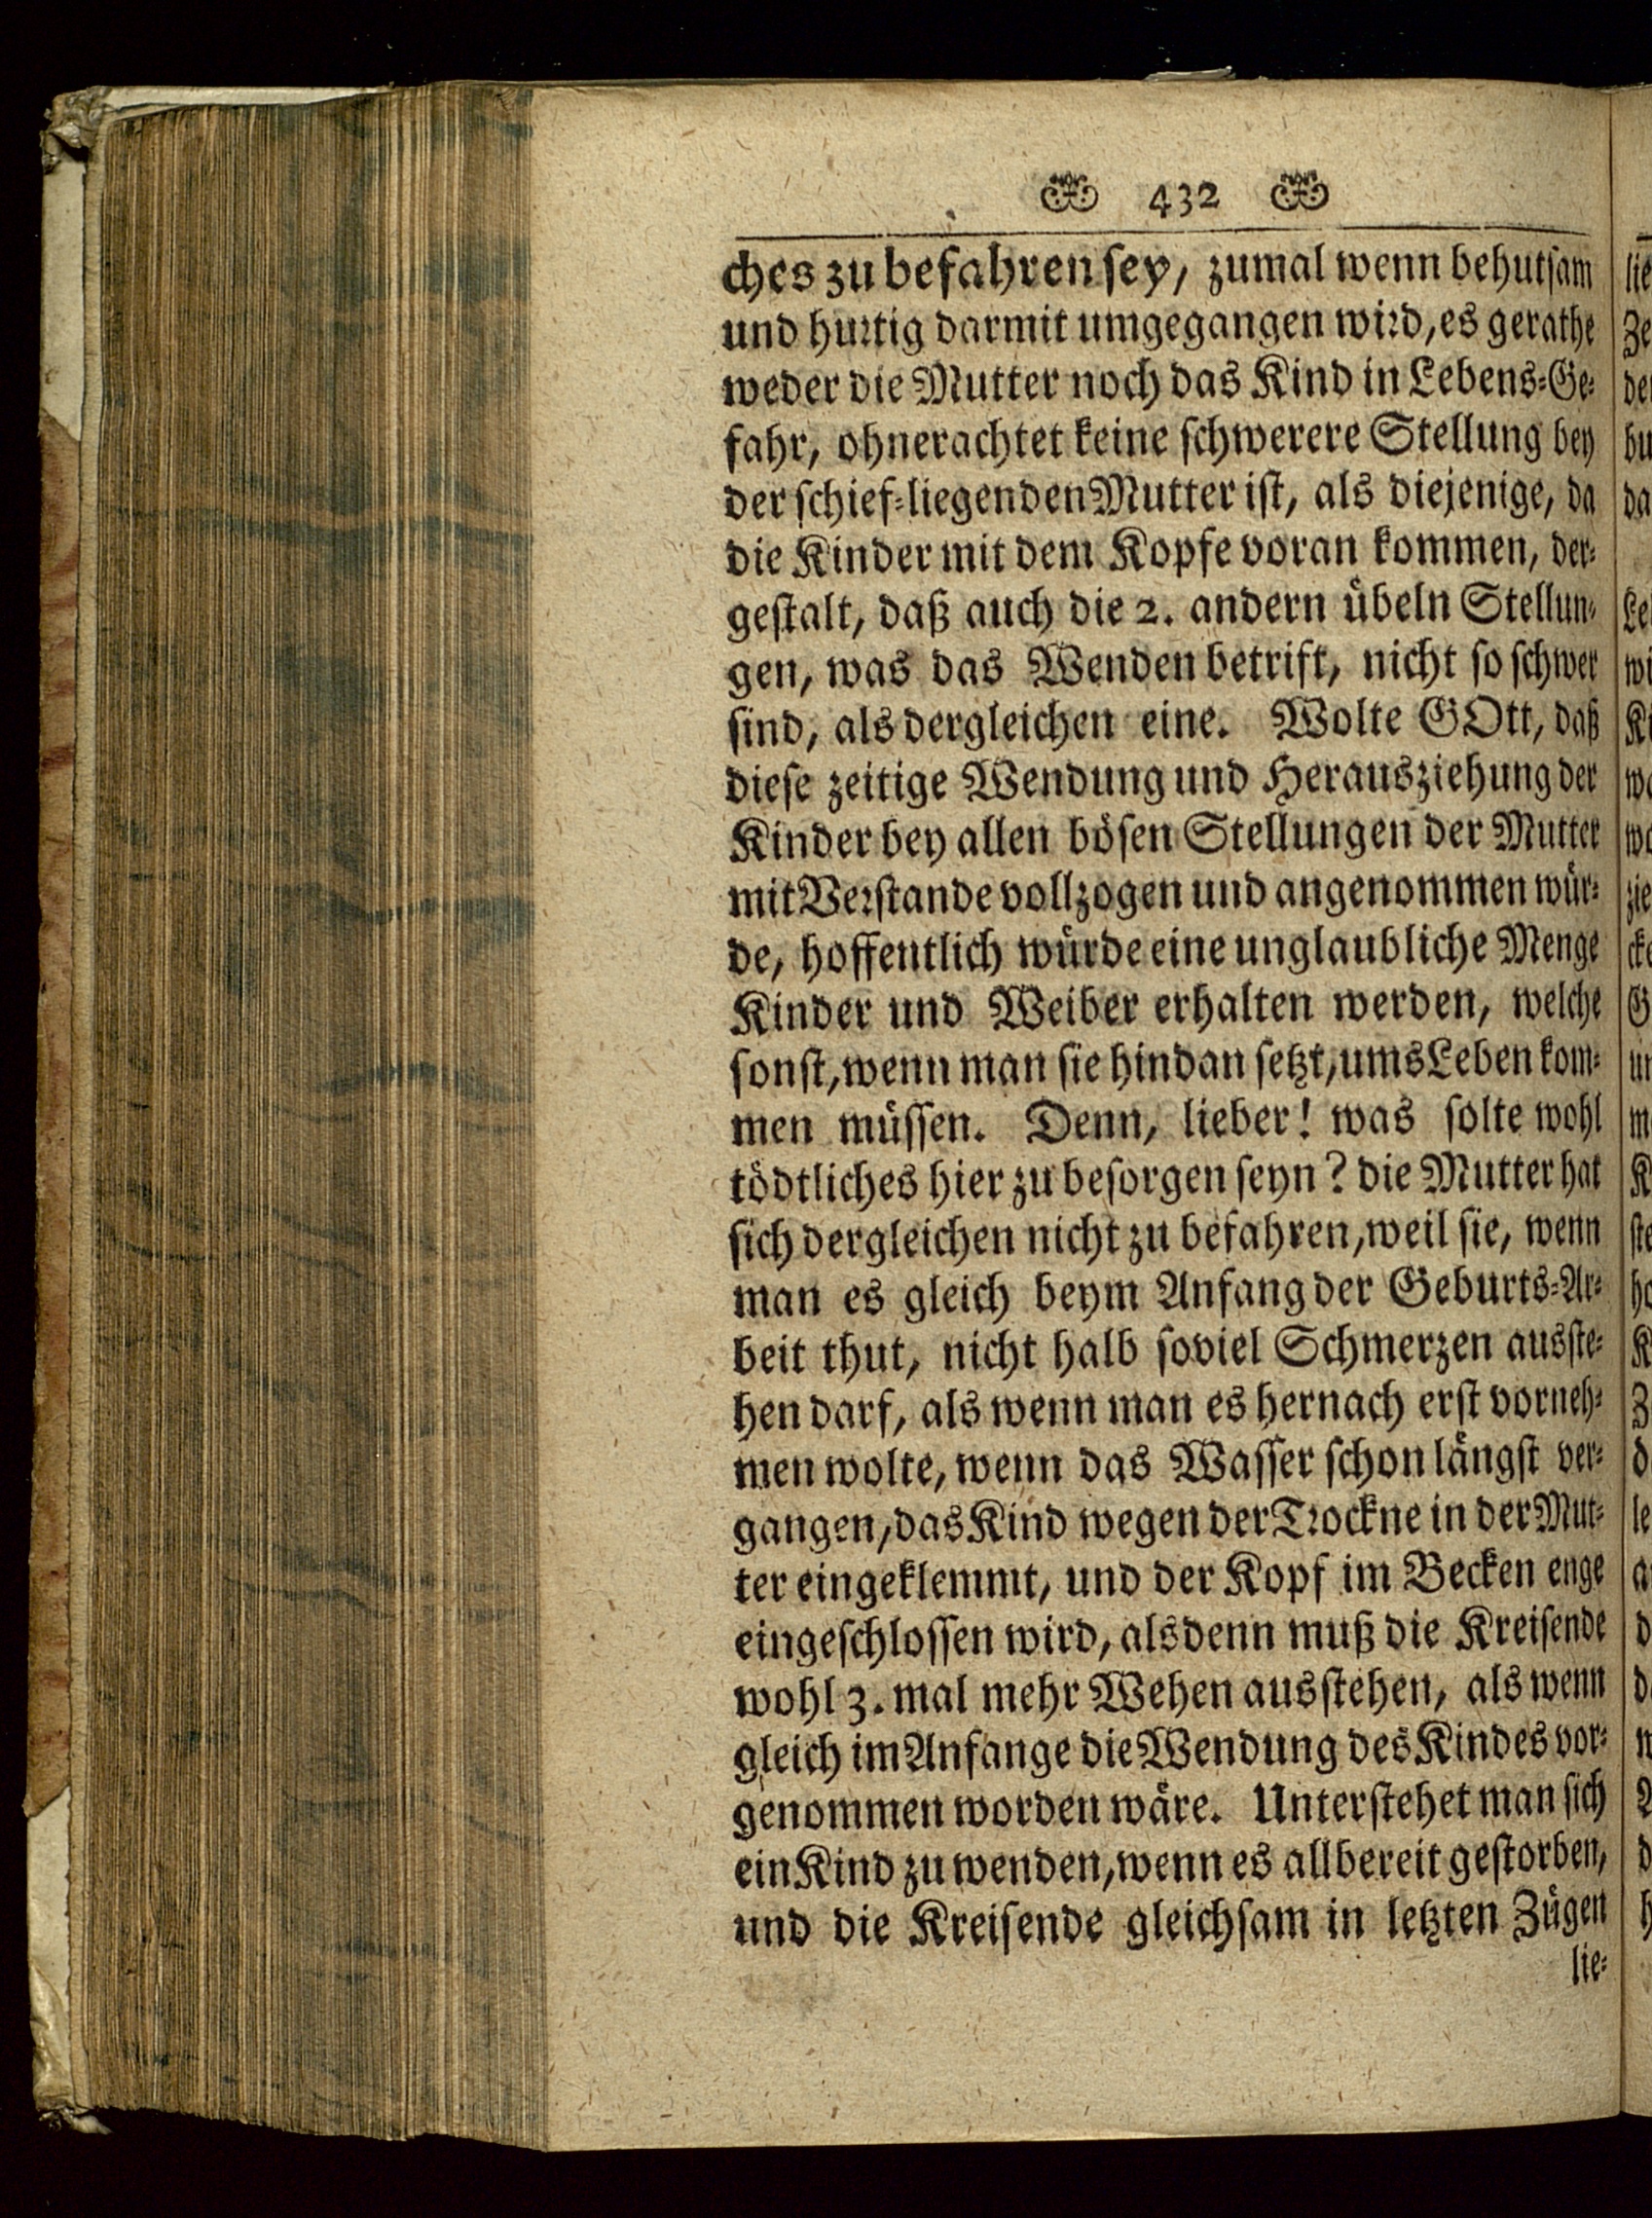 432
ches zu befahren sey, zumal wenn behutsam
und hurtig darmit umgegangen wird, es gerathe
weder die Mutter noch das Kind in Lebens-Ge-
fahr, ohnerachtet keine schwerere Stellung bey
der schief-liegenden Mutter ist, als diejenige, da
die Kinder mit dem Kopfe voran kommen, der-
gestalt, daß auch die 2. andern übeln Stellun-
gen, was das Wenden betrift, nicht so schwer
sind, als dergleichen eine. Wolte GOtt, daß
diese zeitige Wendung und Herausziehung der
Kinder bey allen bösen Stellungen der Mutter
mit Verstande vollzogen und angenommen wür-
de, hoffentlich würde eine unglaubliche Menge
Kinder und Weiber erhalten werden, welche
sonst, wenn man sie hindan setzt, ums Leben kom-
men müssen. Denn, lieber! was solte wohl
tödtliches hier zu besorgen seyn? die Mutter hat
sich dergleichen nicht zu befahren, weil sie, wenn
man es gleich beym Anfang der Geburts-Ar-
beit thut, nicht halb soviel Schmerzen ausste-
hen darf, als wenn man es hernach erst vorneh-
men wolte, wenn das Wasser schon längst ver-
gangen, das Kind wegen der Trockne in der Mut-
ter eingeklemmt, und der Kopf im Becken enge
eingeschlossen wird, alsdenn muß die Kreisende
wohl 3. mal mehr Wehen ausstehen, als wenn
gleich im Anfange die Wendung des Kindes vor-
genommen worden wäre. Unterstehet man sich
ein Kind zu wenden, wenn es allbereit gestorben,
und die Kreisende gleichsam in letzten Zügen
lie-